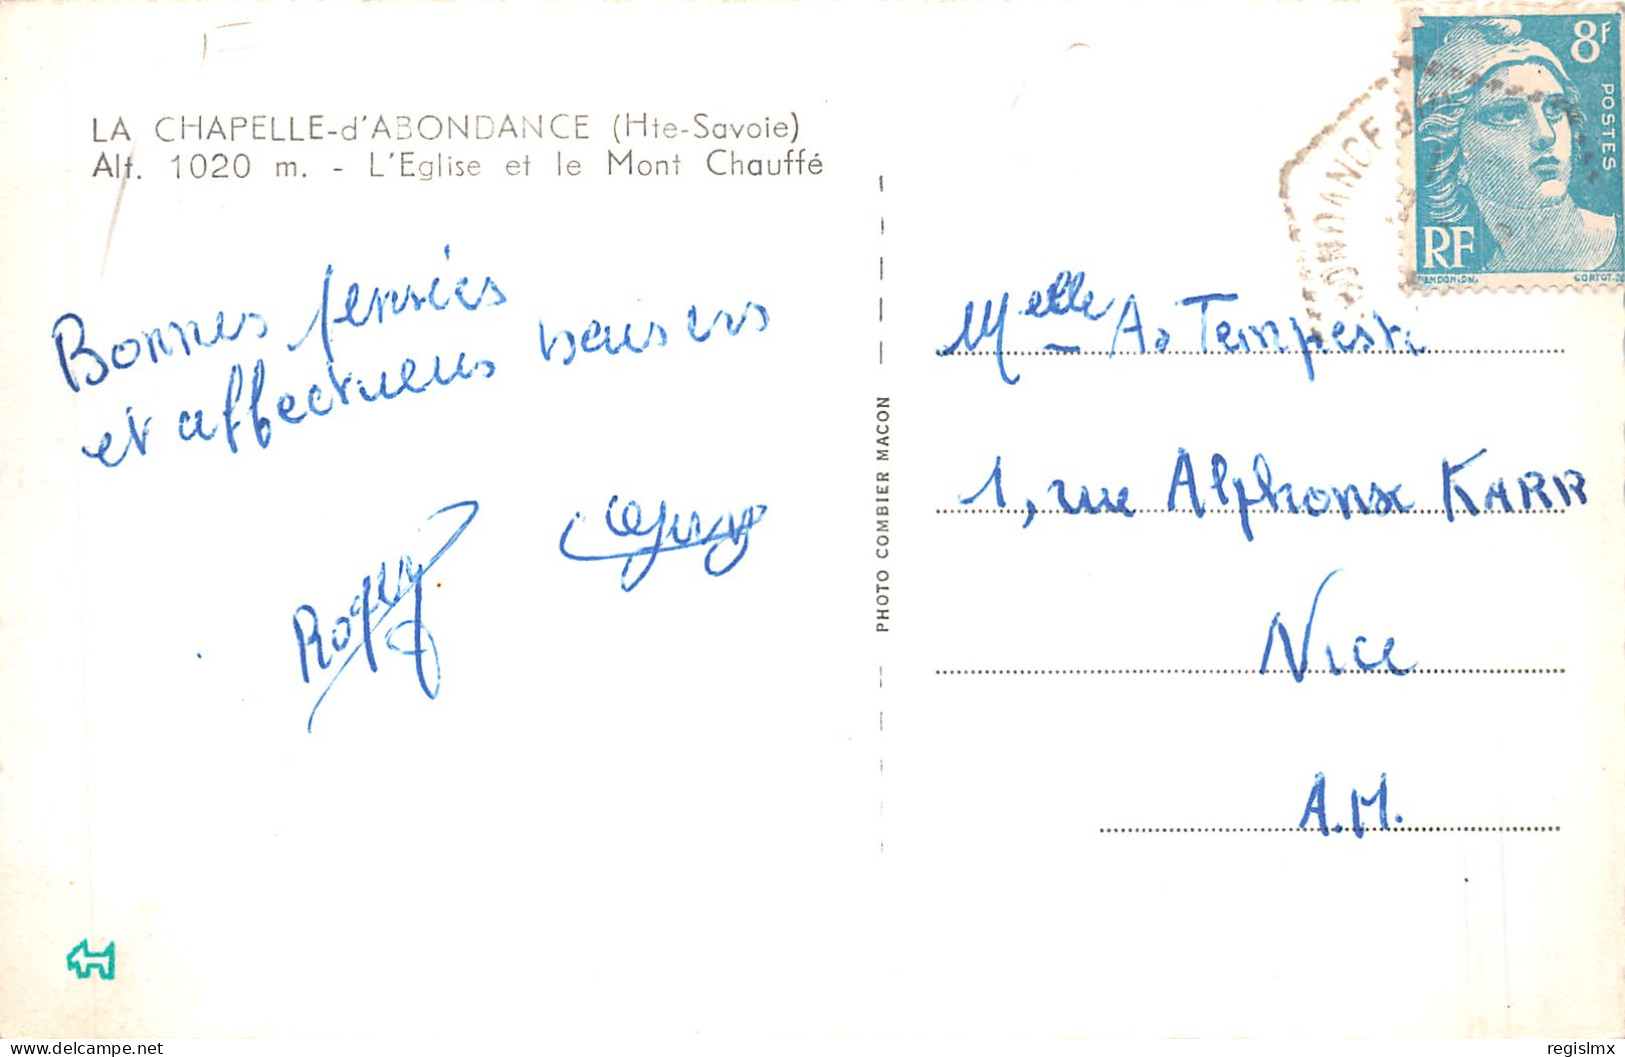 LA CHAPELLE-d'ABONDANCE (Hte-Savoie)
Alt. 1020 m. - L'Eglise et le Mont Chauffé
Bonnes pensées
et affectueux baisers
PHOTO COMBIER MACON
8F
POSTES
RF
GANDON.DEL.
Melle A. Tempesti
1, rue Alphonse KARR
Nice
A.M.
delcampe.net
regislmx